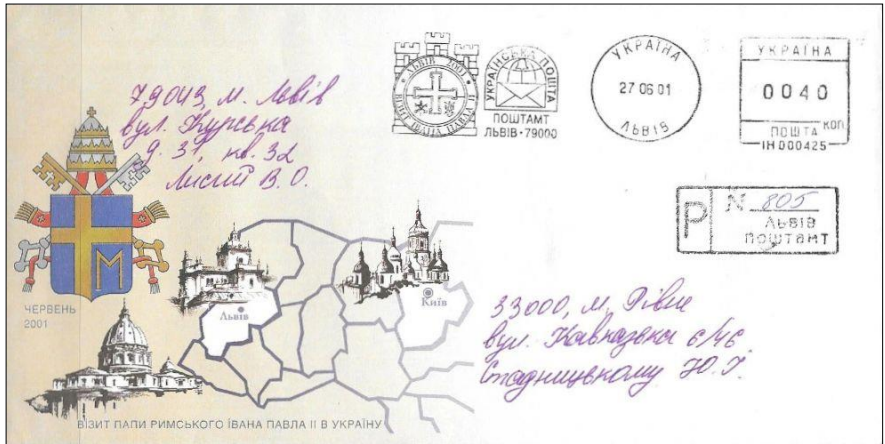 79043, м. Львів
вул. Курська
д. 3, кв. 32
Лисий В.О.
ЛЬВІВ 2001
ВІЗИТ ІВАНА ПАВЛА ІІ
УКРАЇНСЬКА ПОШТА
ПОШТАМТ
ЛЬВІВ-79000
УКРАЇНА
27 06 01
ЛЬВІВ
УКРАЇНА
0040
КОП.
ПОШТА
ІН000425
Р
N 805
ЛЬВІВ
ПОШТАМТ
М
ЧЕРВЕНЬ
2001
Львів
Київ
33000, м. Рівне
вул.
Стадницькому Ю.
ВІЗИТ ПАПИ РИМСЬКОГО ІВАНА ПАВЛА ІІ В УКРАЇНУ